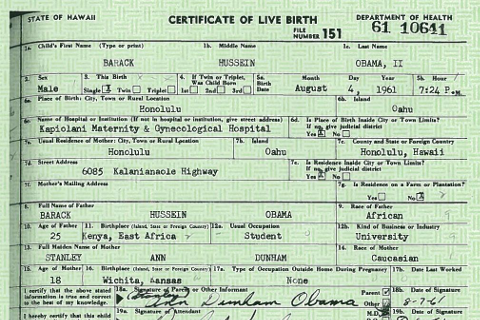 STATE OF HAWAII
CERTIFICATE OF LIVE BIRTH
DEPARTMENT OF HEALTH
FILE NUMBER 151
61 10641
1a. Child's First Name (Type or print)
1b. Middle Name
1c. Last Name
BARACK HUSSEIN OBAMA, II
2. Sex
3. This Birth
4. If Twin or Triplet, Was Child Born
5a. Birth Date
Month Day Year
5b. Hour
Male
Single Twin Triplet
1st 2nd 3rd
August 4, 1961
7:24 P.M.
6a. Place of Birth: City, Town or Rural Location
6b. Island
Honolulu
Oahu
6c. Name of Hospital or Institution (If not in hospital or institution, give street address)
6d. Is Place of Birth Inside City or Town Limits? If no, give judicial district
Kapiolani Maternity & Gynecological Hospital
Yes No
7a. Usual Residence of Mother: City, Town or Rural Location
7b. Island
7c. County and State or Foreign Country
Honolulu
Oahu
Honolulu, Hawaii
7d. Street Address
7e. Is Residence Inside City or Town Limits? If no, give judicial district
6085 Kalanianaole Highway
Yes No
7f. Mother's Mailing Address
7g. Is Residence on a Farm or Plantation?
Yes No
8. Full Name of Father
9. Race of Father
BARACK HUSSEIN OBAMA
African
10. Age of Father
11. Birthplace (Island, State or Foreign Country)
12a. Usual Occupation
12b. Kind of Business or Industry
25
Kenya, East Africa
Student
University
13. Full Maiden Name of Mother
14. Race of Mother
STANLEY ANN DUNHAM
Caucasian
15. Age of Mother
16. Birthplace (Island, State or Foreign Country)
17a. Type of Occupation Outside Home During Pregnancy
17b. Date Last Worked
18
Wichita, Kansas
None
I certify that the above stated information is true and correct to the best of my knowledge.
18a. Signature of Parent or Other Informant
Parent
Other
18b. Date of Signature
(Stanley) Ann Dunham Obama
8-7-61
I hereby certify that this child
19a. Signature of Attendant
M.D.
19b. Date of